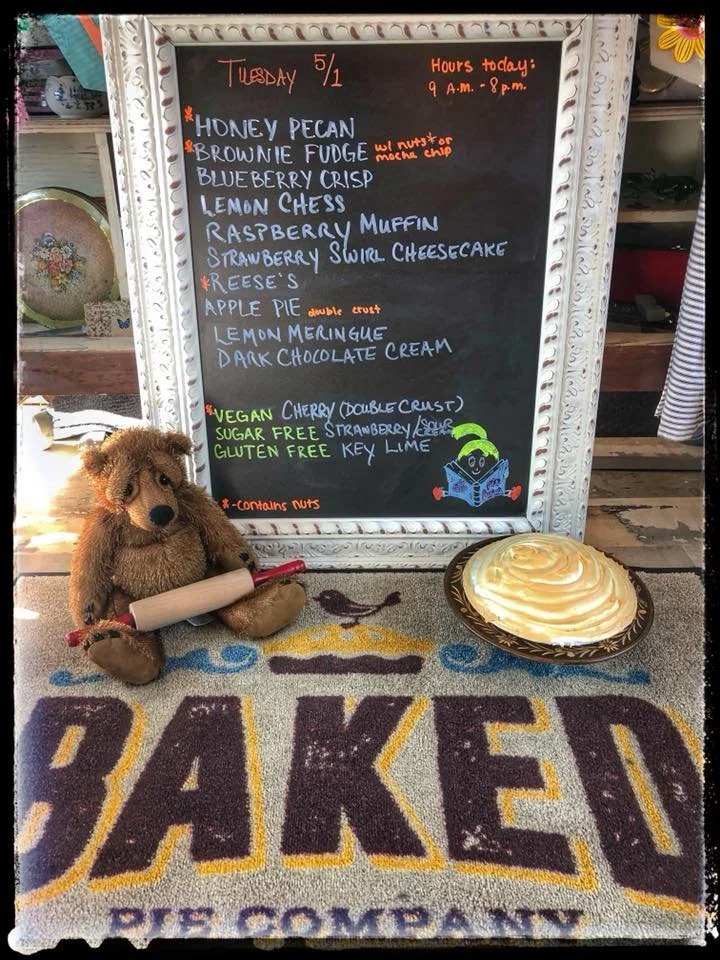 TUESDAY 5/1
Hours today:
9 A.M. - 8 p.m.
*HONEY PECAN
*BROWNIE FUDGE w/ nuts* or mocha chip
BLUEBERRY CRISP
LEMON CHESS
RASPBERRY MUFFIN
STRAWBERRY SWIRL CHEESECAKE
*REESE'S
APPLE PIE double crust
LEMON MERINGUE
DARK CHOCOLATE CREAM
*VEGAN CHERRY (DOUBLE CRUST)
SUGAR FREE STRAWBERRY/SOUR CREAM
GLUTEN FREE KEY LIME
*-contains nuts
BAKED
PIE COMPANY